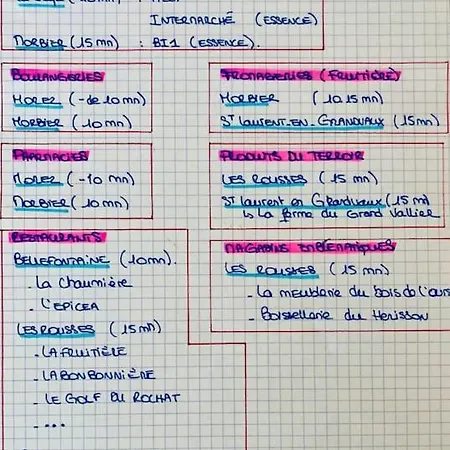 INTERMARCHÉ (ESSENCE)
MORBIER (15 mn) : BI1 (ESSENCE).
BOULANGERIES
MOREZ (- de 10 mn)
MORBIER (10 mn)
FROMAGERIES (FRUITIÈRE)
MORBIER (10.15 mn)
ST LAURENT-EN-GRANDVAUX (15 mn)
PHARMACIES
MOREZ (-10 mn)
MORBIER (10 mn)
PRODUITS DU TERROIR
LES ROUSSES (15 mn)
ST Laurent en Grandvaux (15 mn)
↳ La ferme du Grand Vallier
RESTAURANTS
BELLEFONTAINE (10mn).
- La chaumière
- L'EPICEA
LES ROUSSES (15 mn)
- LA FRUITIÈRE
- LA BONBONNIÈRE
- LE GOLF DU ROCHAT
- ....
MAGASINS EMBLÉMATIQUES
LES ROUSSES (15 mn)
- La meublerie du bois de l'ours
- Boissellerie du Herisson